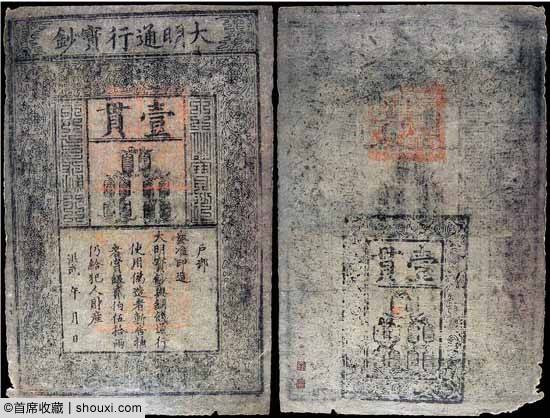 大明通行寶鈔
壹貫
戶部
奏准印造
大明寶鈔與銅錢通行
使用偽造者斬告捕
者賞銀貳佰伍拾兩
仍給犯人財產
洪武 年 月 日
壹貫
©首席收藏 | shouxi.com